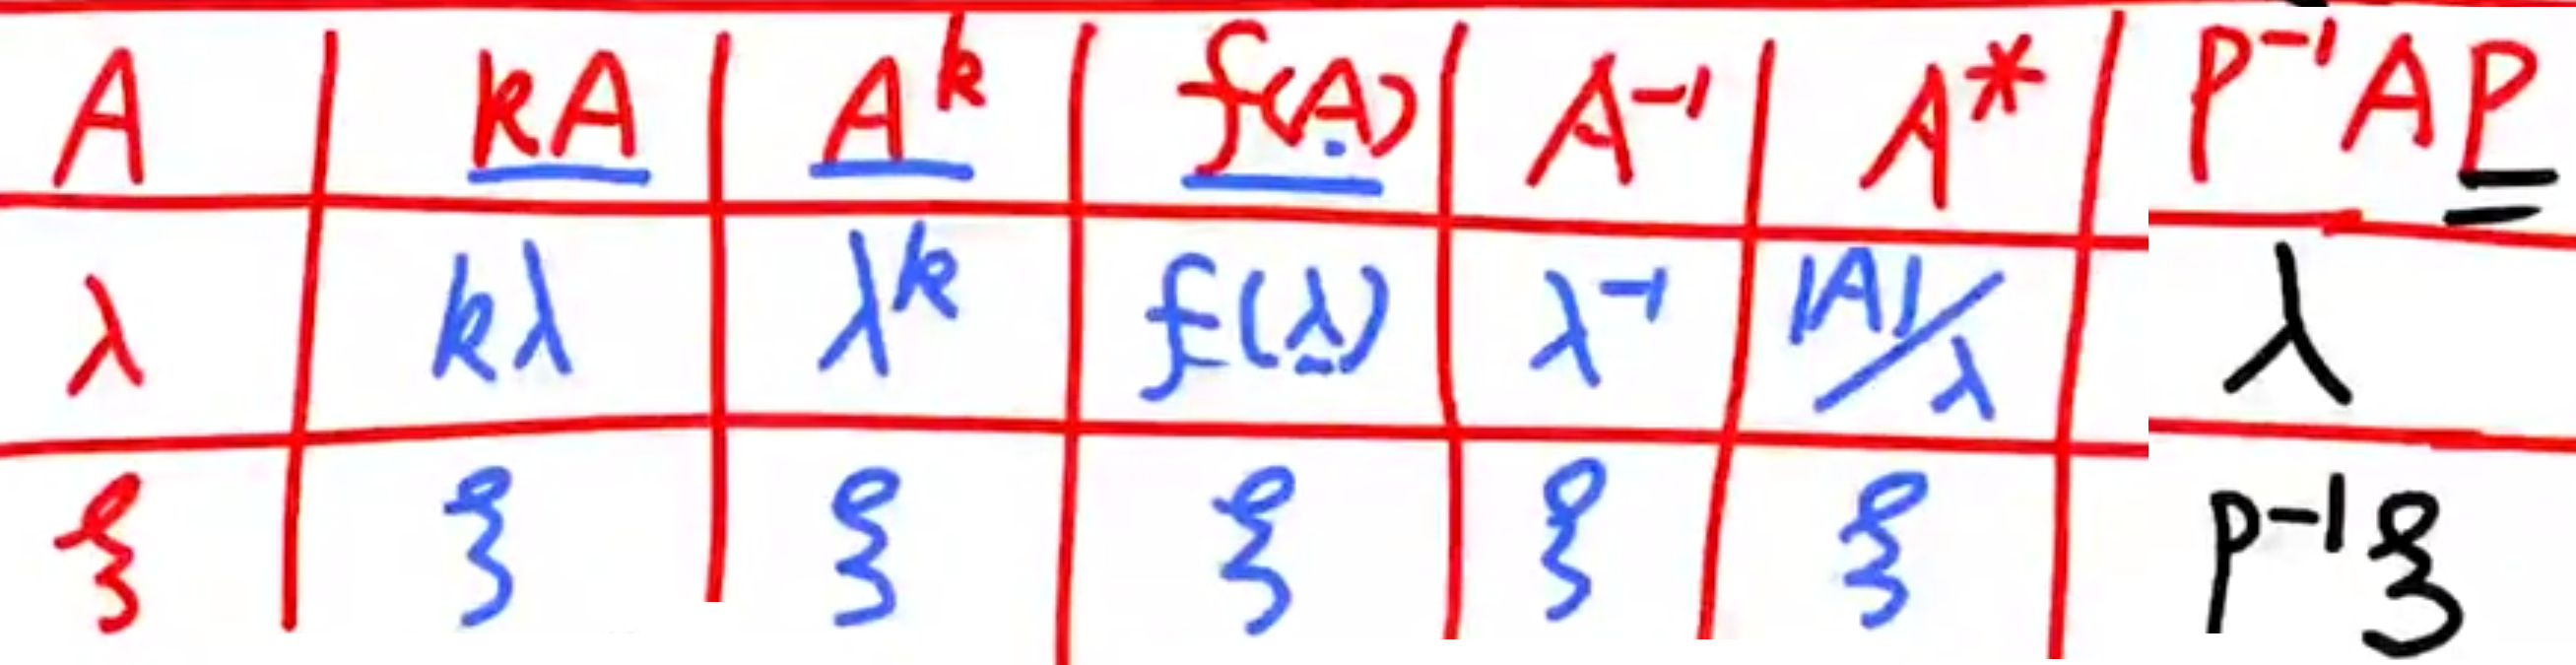 A kA A^k f(A) A^-1 A* P^-1AP
λ kλ λ^k f(λ) λ^-1 |A|/λ λ
ξ ξ ξ ξ ξ ξ P^-1ξ